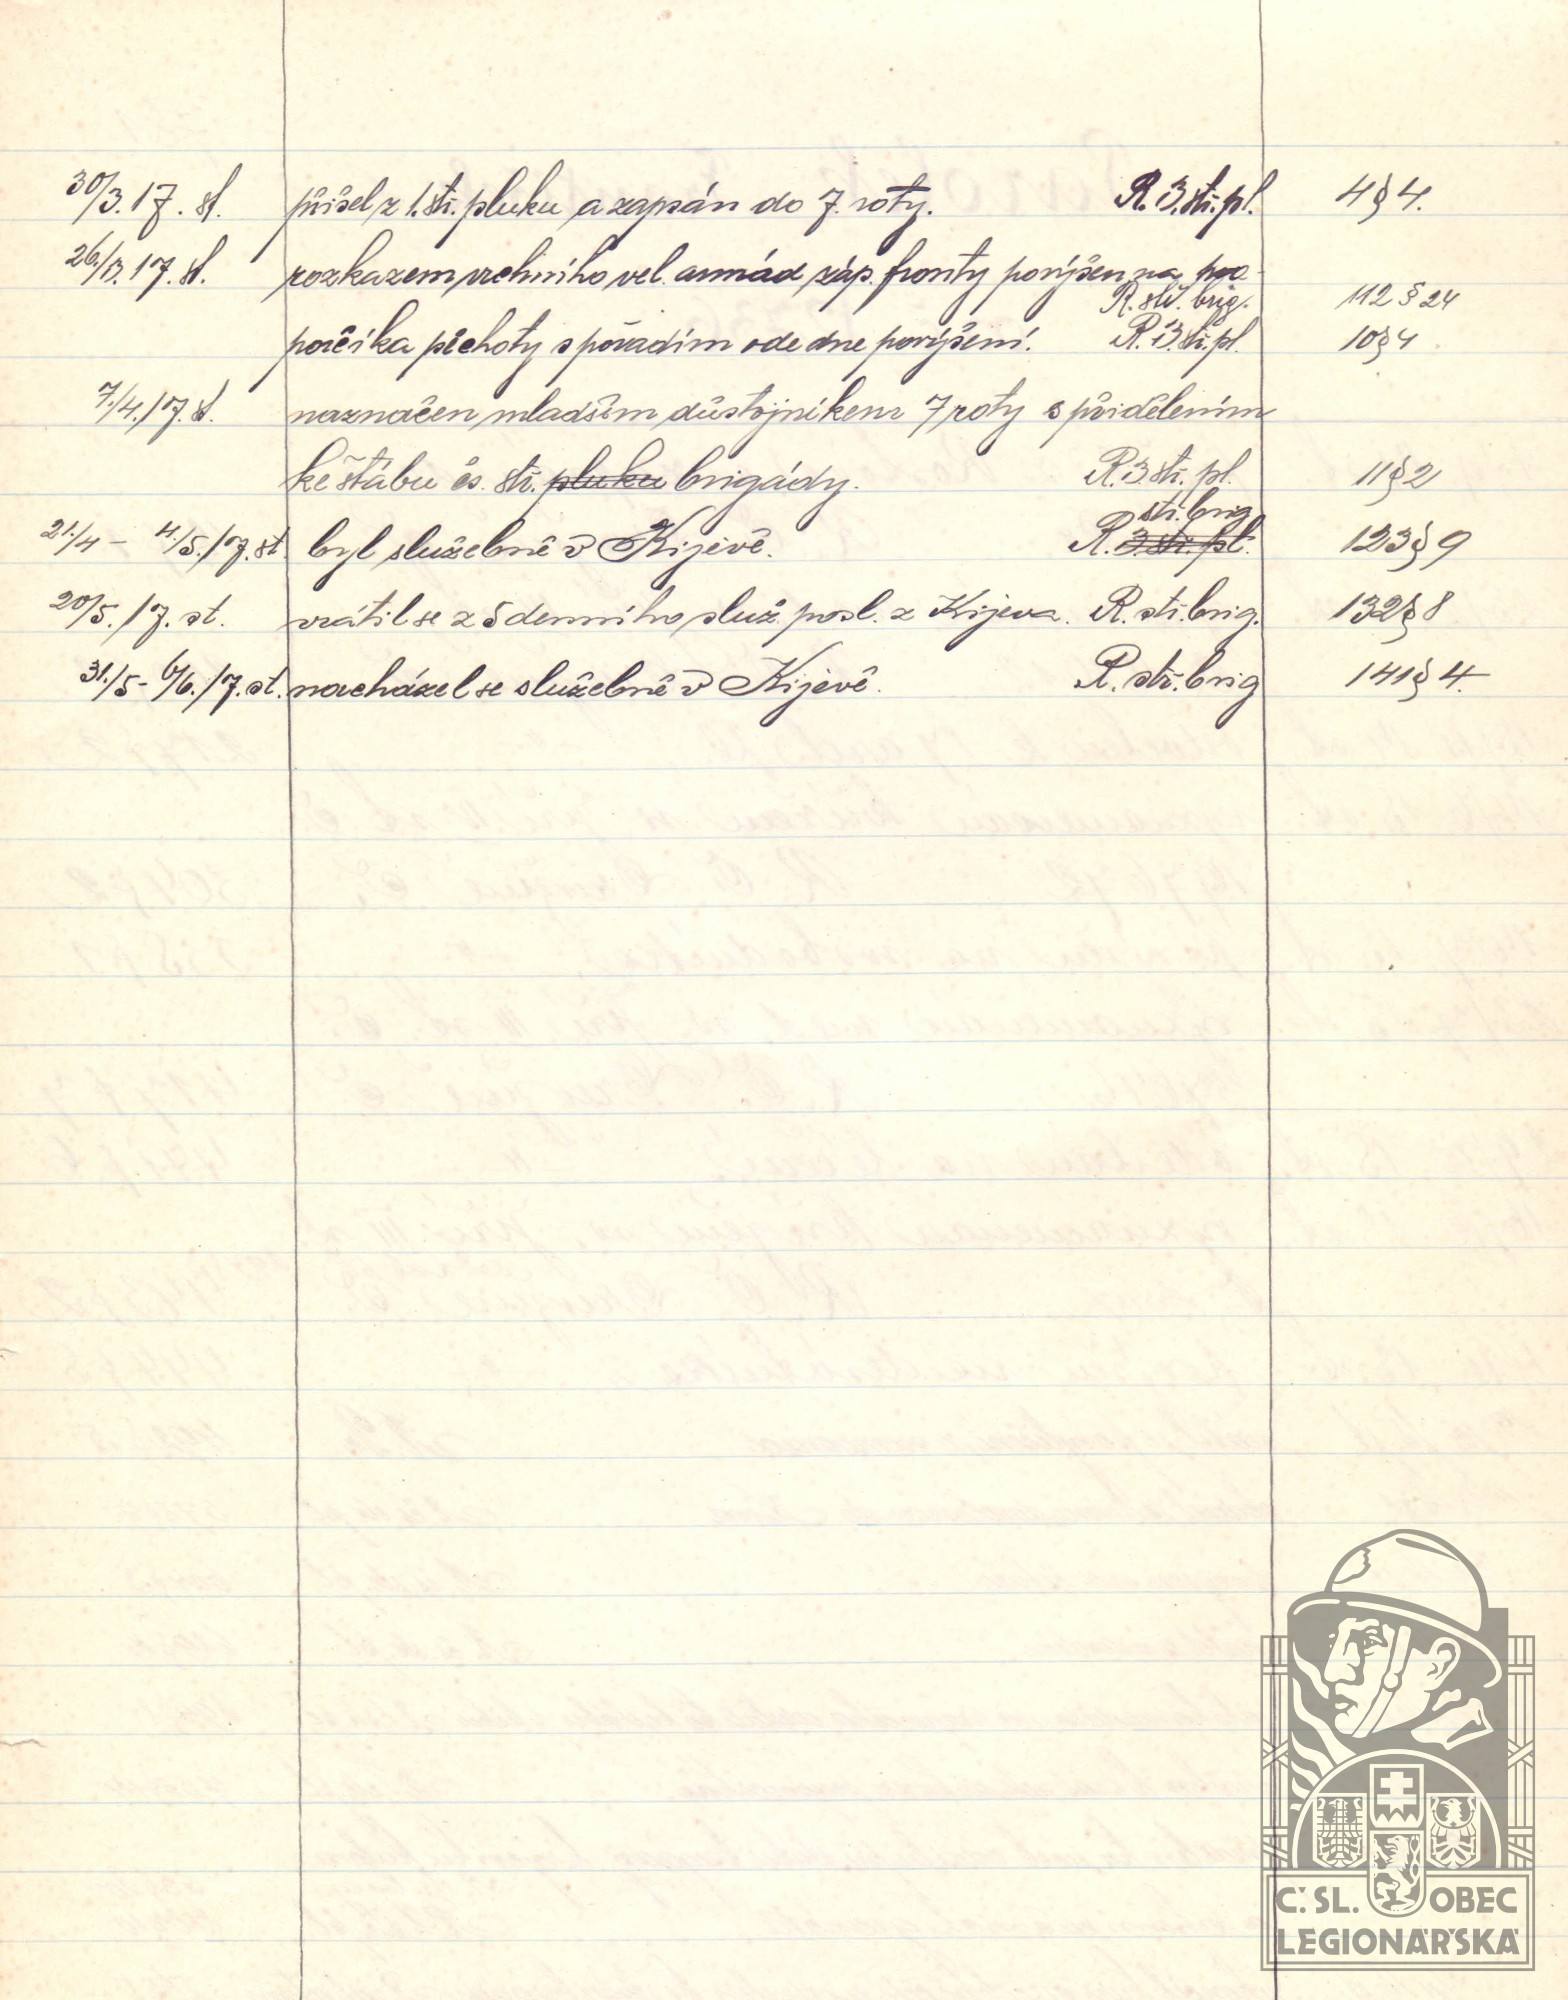 30/3. 17. st. přišel z 1. stř. pluku a zapsán do 7. roty. R. 3. stř. pl. 4 § 4.
26./3. 17. st. rozkazem vrchního vel. armád záp. fronty povýšen na pod-
R. stř. brig. 112 § 24
poručíka pěchoty s pořadím ode dne povýšení. R. 3. stř. pl. 10 § 4
7./4. 17. st. naznačen mladším důstojníkem 7 roty s přidělením
ke štábu čs. stř. pluku brigády. R. 3 stř. pl. 11 § 2
stř. brig.
21./4 - 4./5. 17. st. byl služebně v Kijevě. R. 3. stř. pl. 123 § 9
20/5. 17. st. vrátil se z 5 denního služ. posl. z Kijeva. R. stř. brig. 132 § 8
31./5 - 6/6. 17. st. nacházel se služebně v Kijevě. R. stř. brig 141 § 4.
Č. SL. OBEC
LEGIONÁŘSKÁ